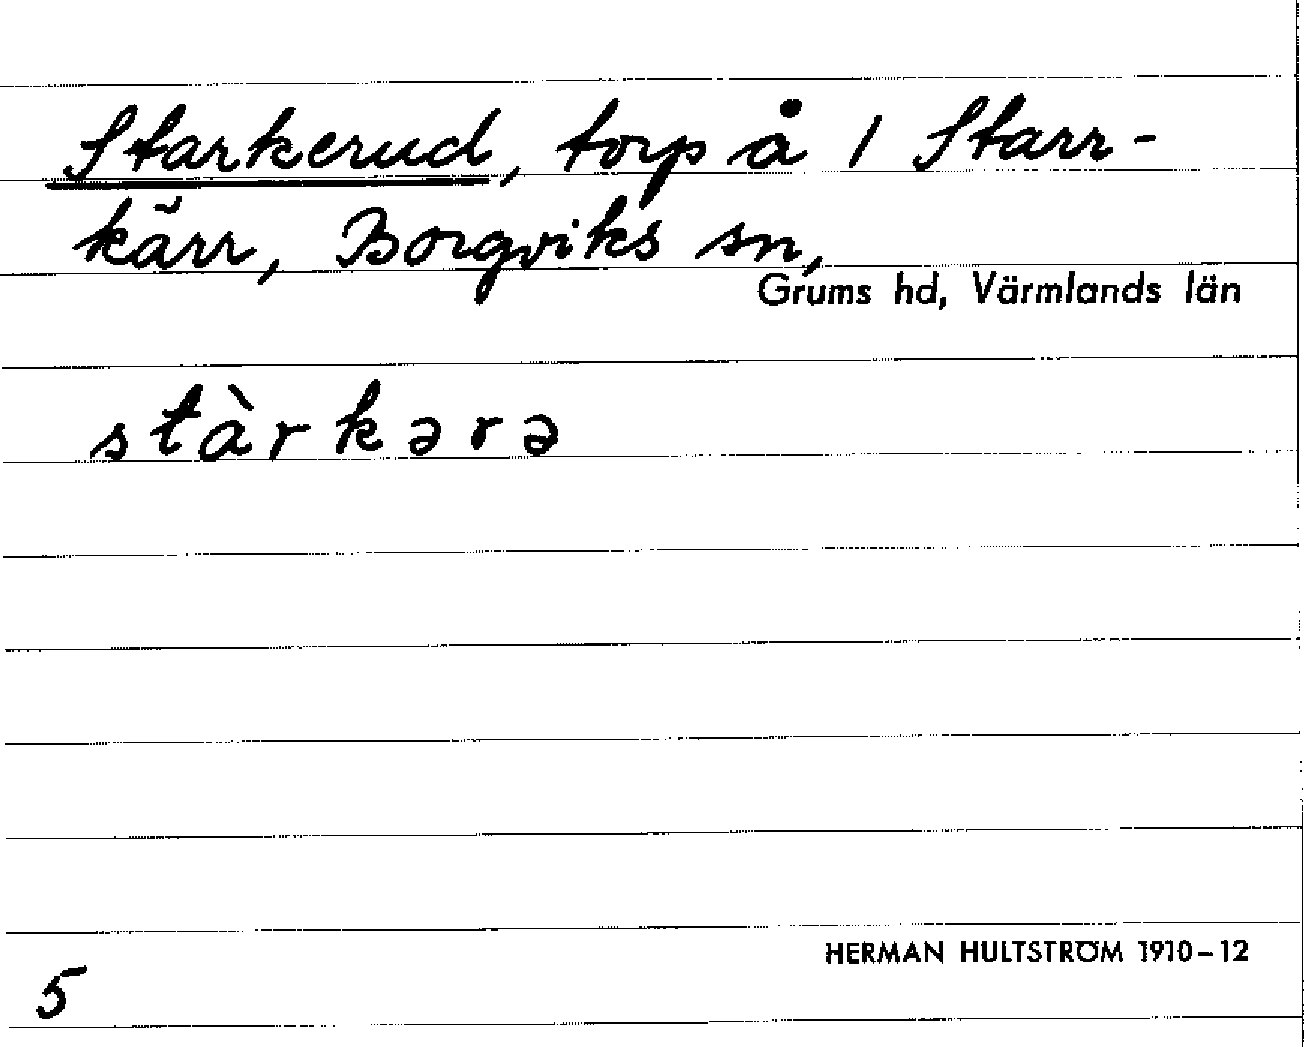 Starkerud, torp å 1 Starr-
kärr, Borgviks sn,
Grums hd, Värmlands län
stàrkərə
HERMAN HULTSTRÖM 1910-12
5